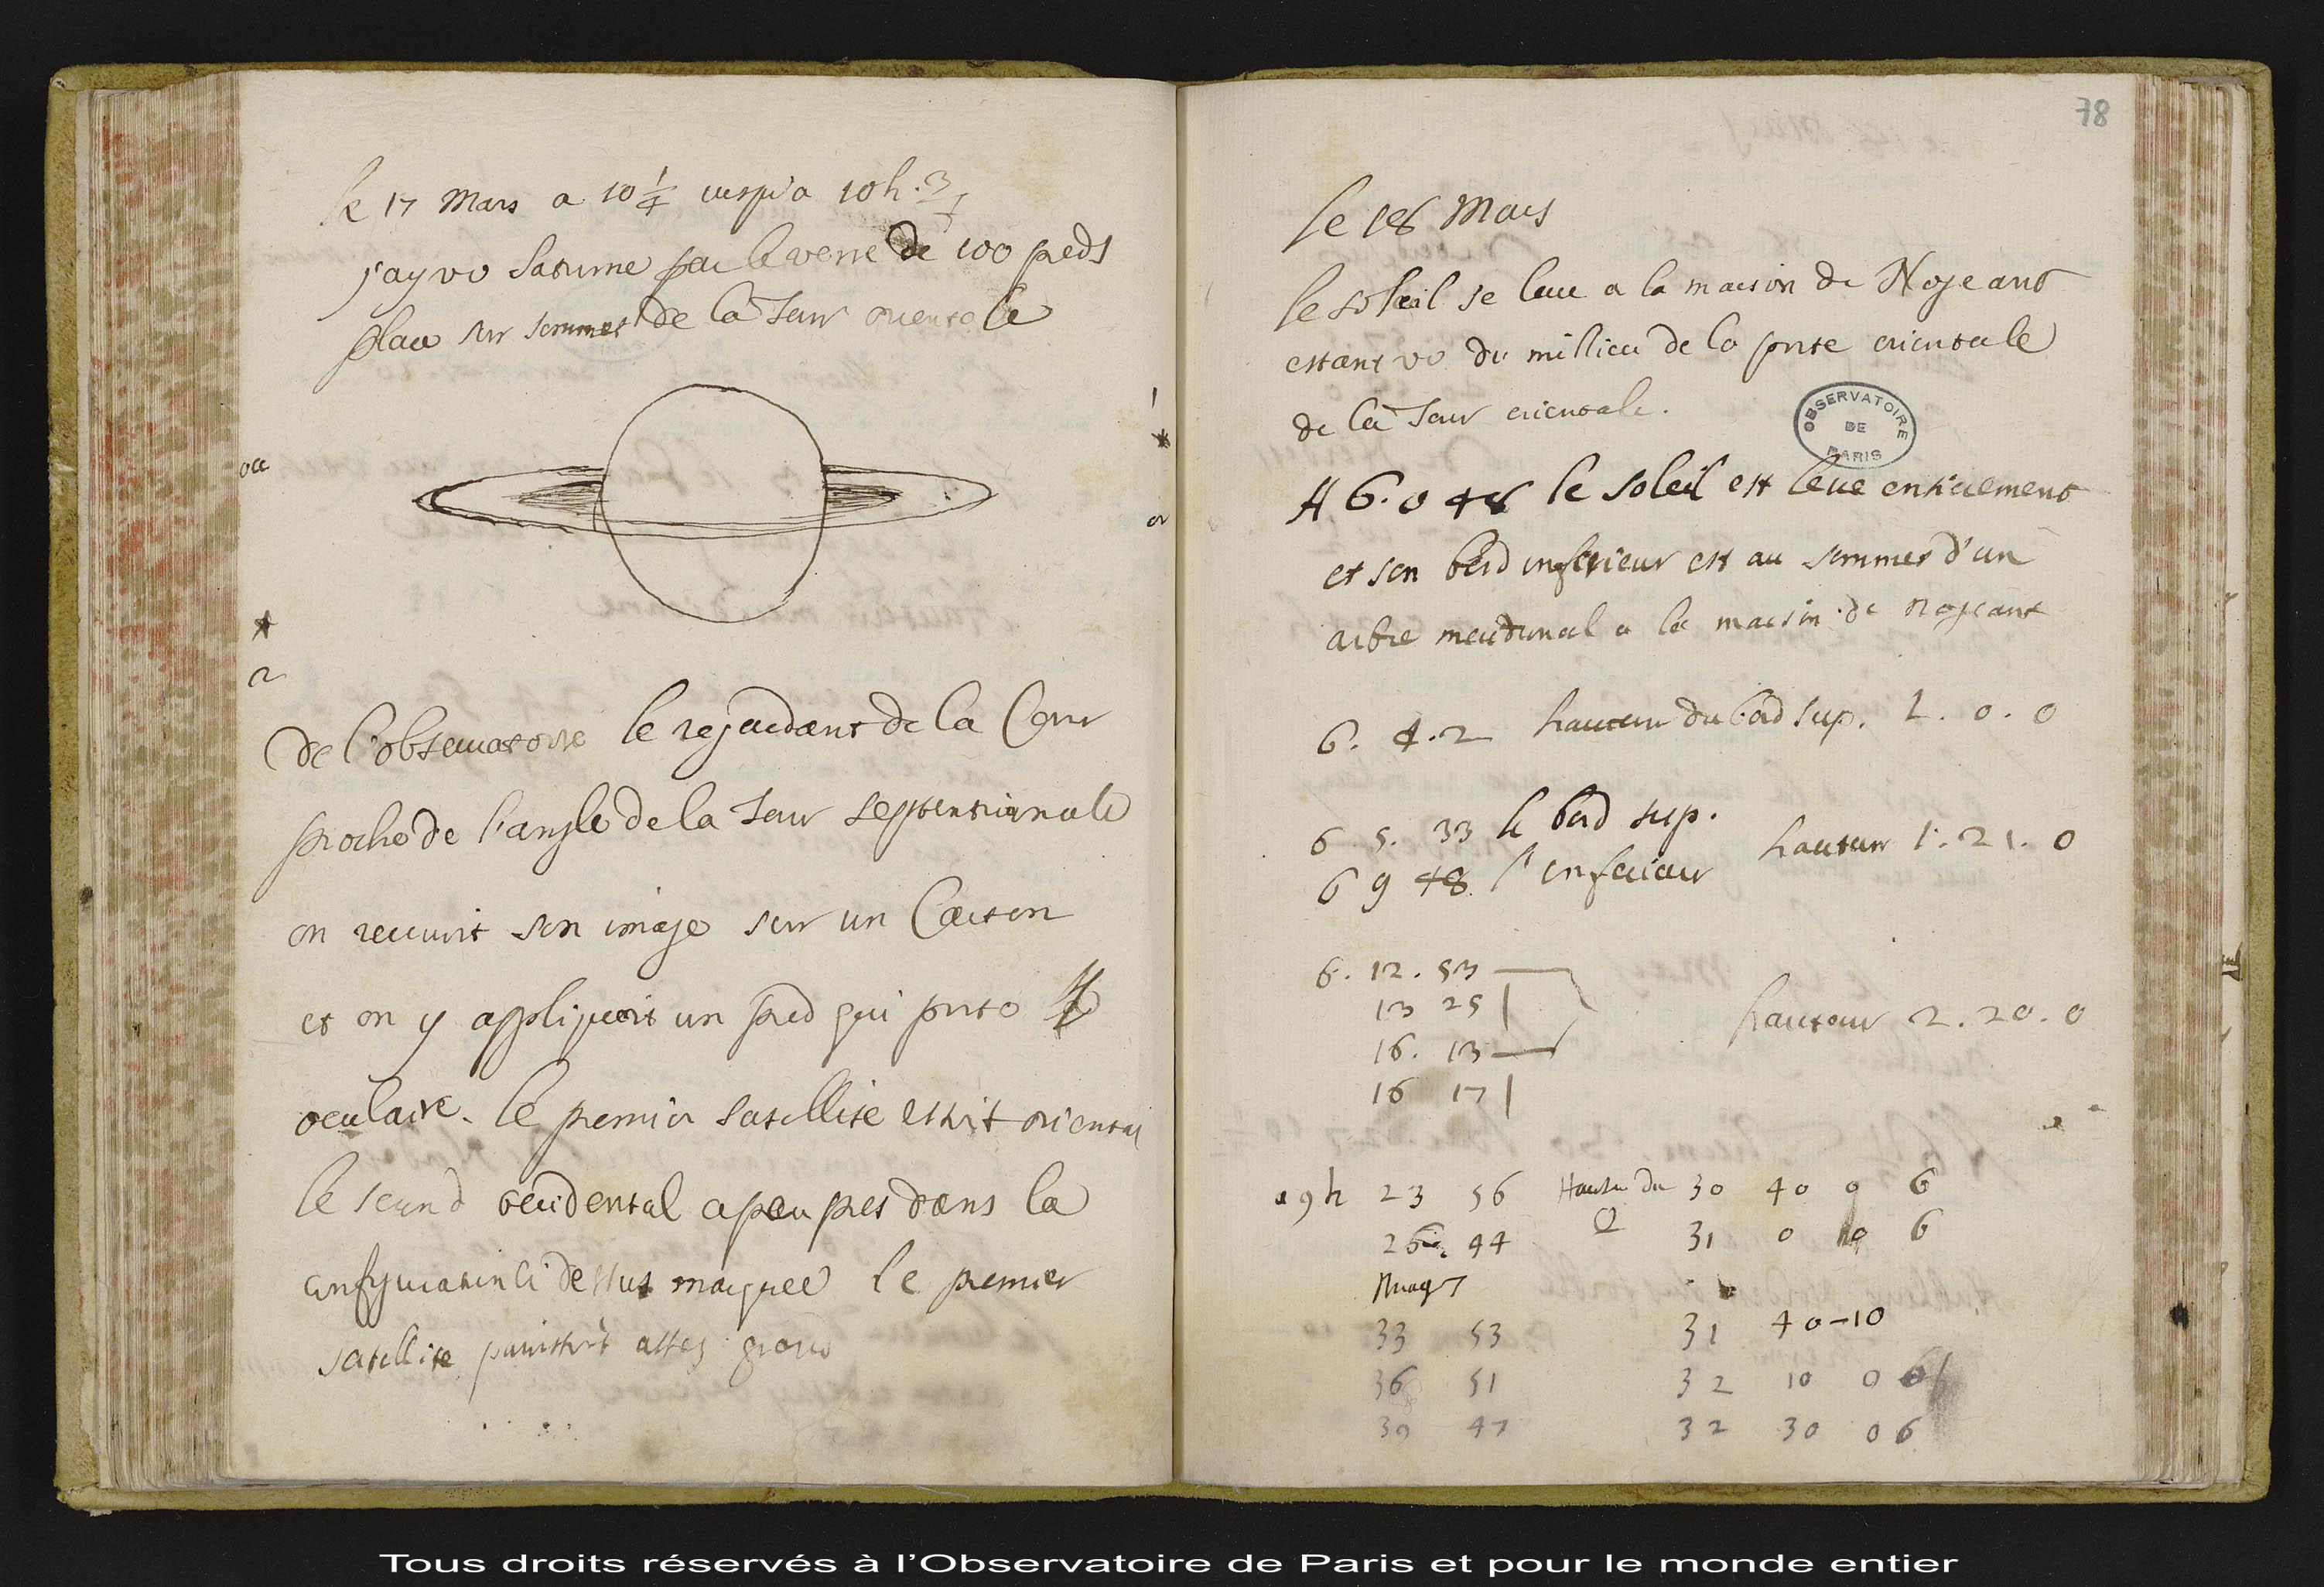 le 17 Mars a 10 1/4 jusqu'a 10h. 3/4
j'ay vu Saturne par le verre de 100 pieds
place sur sommet de la tour orientale
de l'observatoire le regardant de la Cour
proche de l'angle de la tour septentrionale
on recevoit son image sur un Carton
et on y appliquoit un pied qui porte
oculaire. le premier satellite estoit oriental
le second occidental a peu pres dans la
configuration ci dessus marquee le premier
satellite paroissoit assez grand
78
le 18 Mars
le soleil se leve a la maison de Nogeant
estant vu du milieu de la porte orientale
de la tour orientale.
OBSERVATOIRE DE PARIS
A 6. 0 48 le soleil est levé entierement
et son bord inferieur est au sommet d'un
arbre meridional a la maison de nogeant
6. 4. 2 hauteur du bord sup. 1. 0. 0
6 5. 33 le bord sup.
6 9 48 l'inferieur hauteur 1. 21. 0
6. 12. 53
13 25
16. 13
16 17
hauteur 2. 20. 0
9h 23 56 Hauteur du 30 40 0 6
26. 44 31 0 0 6
Nuages
33 53 31 40-10
36 51 32 10 0 6
39 47 32 30 0 6
Tous droits réservés à l'Observatoire de Paris et pour le monde entier